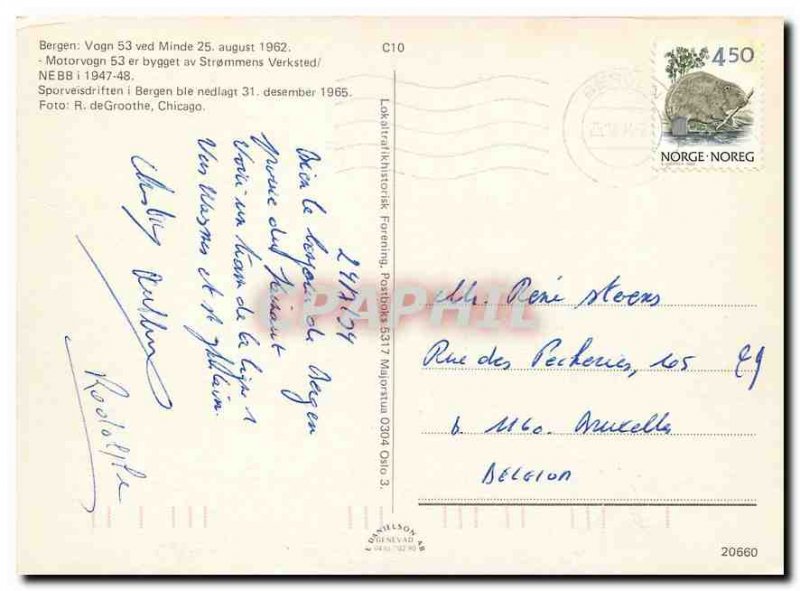 Bergen: Vogn 53 ved Minde 25. august 1962.
- Motorvogn 53 er bygget av Strømmens Verksted/
NEBB i 1947-48.
Sporveisdriften i Bergen ble nedlagt 31. desember 1965.
Foto: R. deGroothe, Chicago.
C10
4 50
NORGE·NOREG
Lokaltrafikhistorisk Forening, Postboks 5317 Majorstua 0304 Oslo 3.
Bien le bonjour de Bergen
Voici un tram de la ligne 1
Vers Wasmes et St Ghislain.
Rodolphe
Mr. René Steens
Rue des Pêcheries, 105
b. 1160. Bruxelles
BELGION
CPAPHIL
DANIELSON AB
GENEVAD
20660